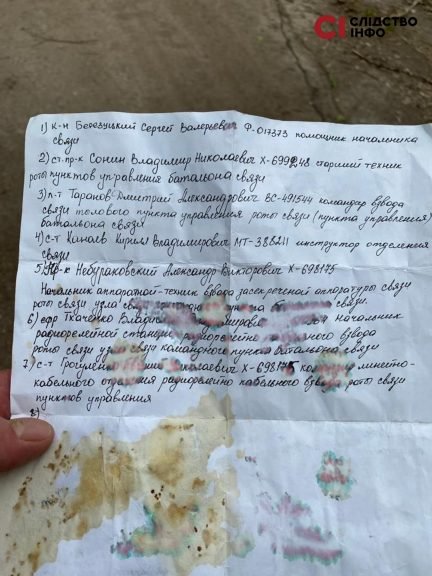 СІ СЛІДСТВО
ІНФО
1) к-н Березуцкий Сергей Валерьевич Ф-017373 помощник начальника
связи
2) ст. пр-к Сонин Владимир Николаевич Х-699248 старший техник
роты пунктов управления батальона связи
3) л-т Таранов Дмитрий Александрович ВС-491544 командир взвода
связи тылового пункта управления роты связи (пункта управления)
батальона связи
4) с-т Кирилл Владимирович МТ-386211 инструктор отделения
связи
5) пр-к Небураковский Александр Викторович Х-698175
Начальник аппаратной-техник взвода засекреченой аппаратуры связи
роты связи узла связи.
6) ефр Ткаченко начальник
радиорелейной станции взвода
роты связи узла связи командного пункта батальона связи
7) с-т Х-698175 линейно-
кабельного отделения радиорелейно кабельного взвода роты связи
пунктов управления
8)